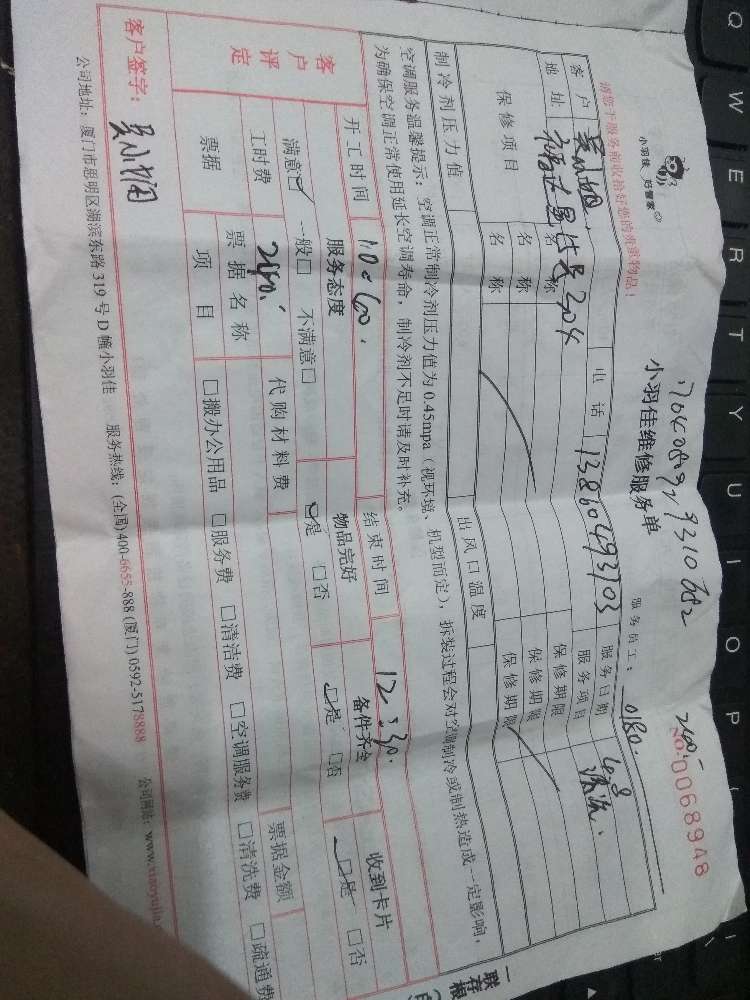 小羽佳 好管家
请您于服务前收拾好您的贵重物品！
小羽佳维修服务单
服务员工： 0180.
240-
NO:0068948
客户 电话 13860493703 服务日期 4.8
地址 304 服务项目 清洗.
保修项目 名称 保修期限
名称 保修期限
名称 保修期限
制冷剂压力值 出风口温度
空调服务温馨提示：空调正常制冷剂压力值为 0.45mpa（视环境、机型而定），拆装过程会对空调制冷或制热造成一定影响，
为确保空调正常使用延长空调寿命，制冷剂不足时请及时补充。
开工时间 结束时间 12:30.
客户评定 服务态度 物品完好 备件齐全 收到卡片
满意☑ 一般□ 不满意□ ☑是 □否 ☑是 □否 ☑是 □否
工时费 240. 代购材料费 票据金额
票据 票据名称
项目 □搬办公用品 □服务费 □清洁费 □空调服务费 □清洗费 □疏通费
客户签字：
公司地址：厦门市思明区湖滨东路 319 号 D 幢小羽佳 服务热线：(全国)400-6655-888 (厦门) 0592-5178888 公司网站：www.xiaoyujia
一联存根
Q W E R T Y U I O P